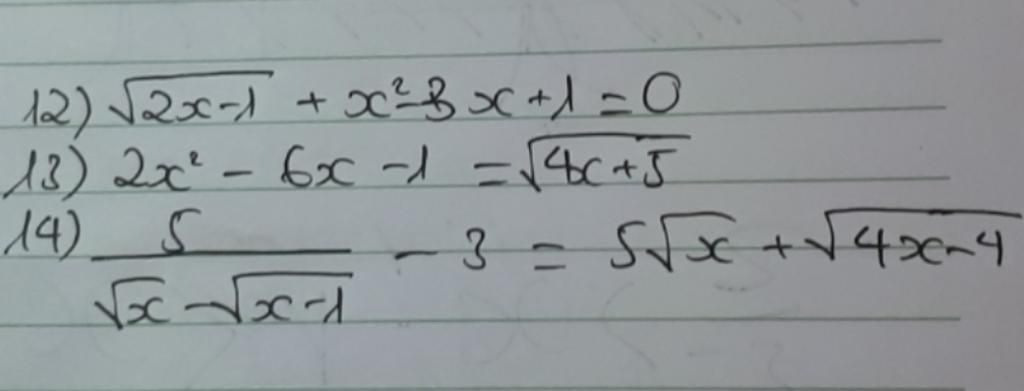 12) √(2x-1) + x²-3x+1=0
13) 2x² - 6x -1 = √(4x+5)
14) 5/(√x-√(x-1)) - 3 = 5√x + √(4x-4)